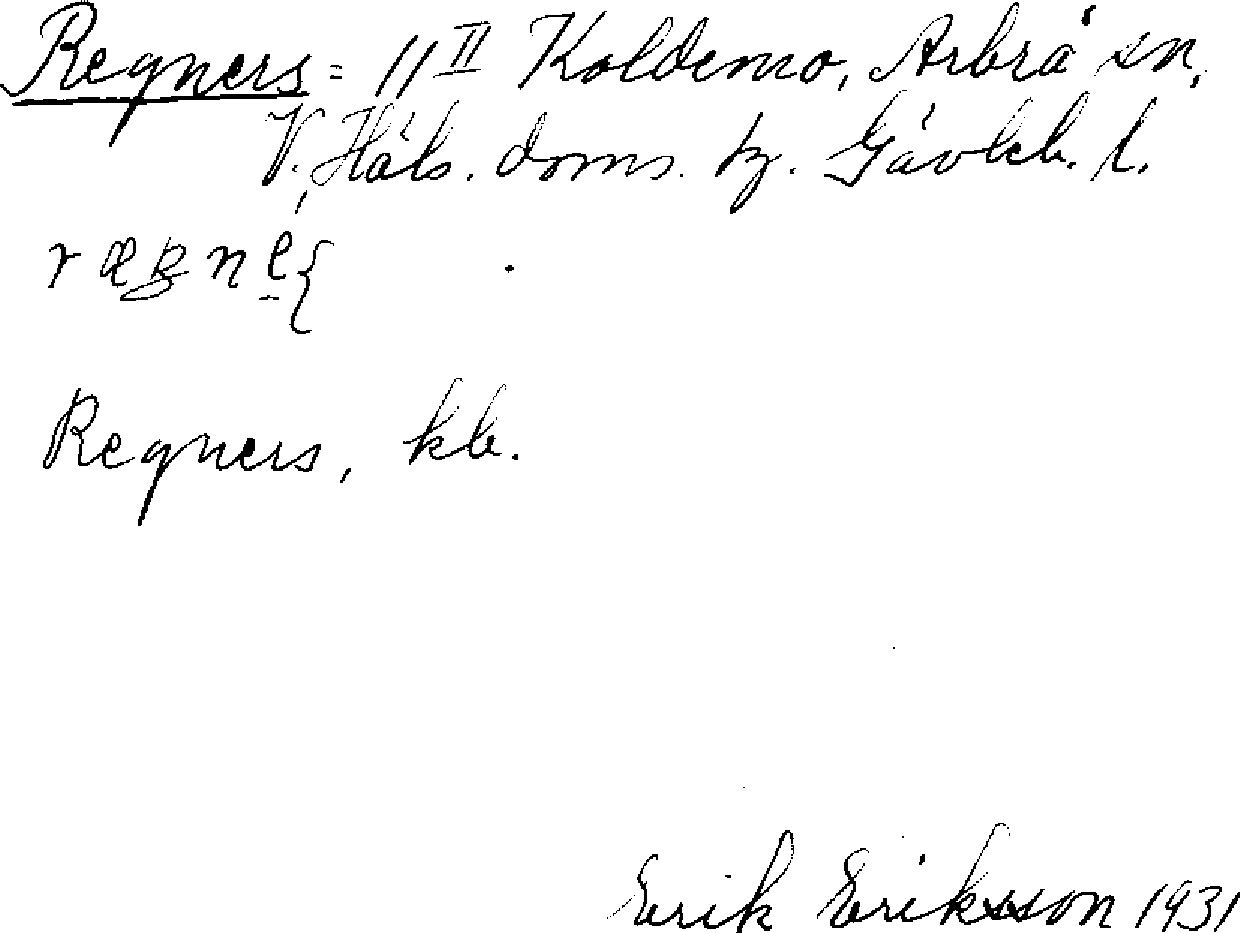 Regners = 11 II Koldemo, Arbrå sn,
V. Häls. doms. tg. Gävleb. l.
Regners, kb.
Erik Eriksson 1931